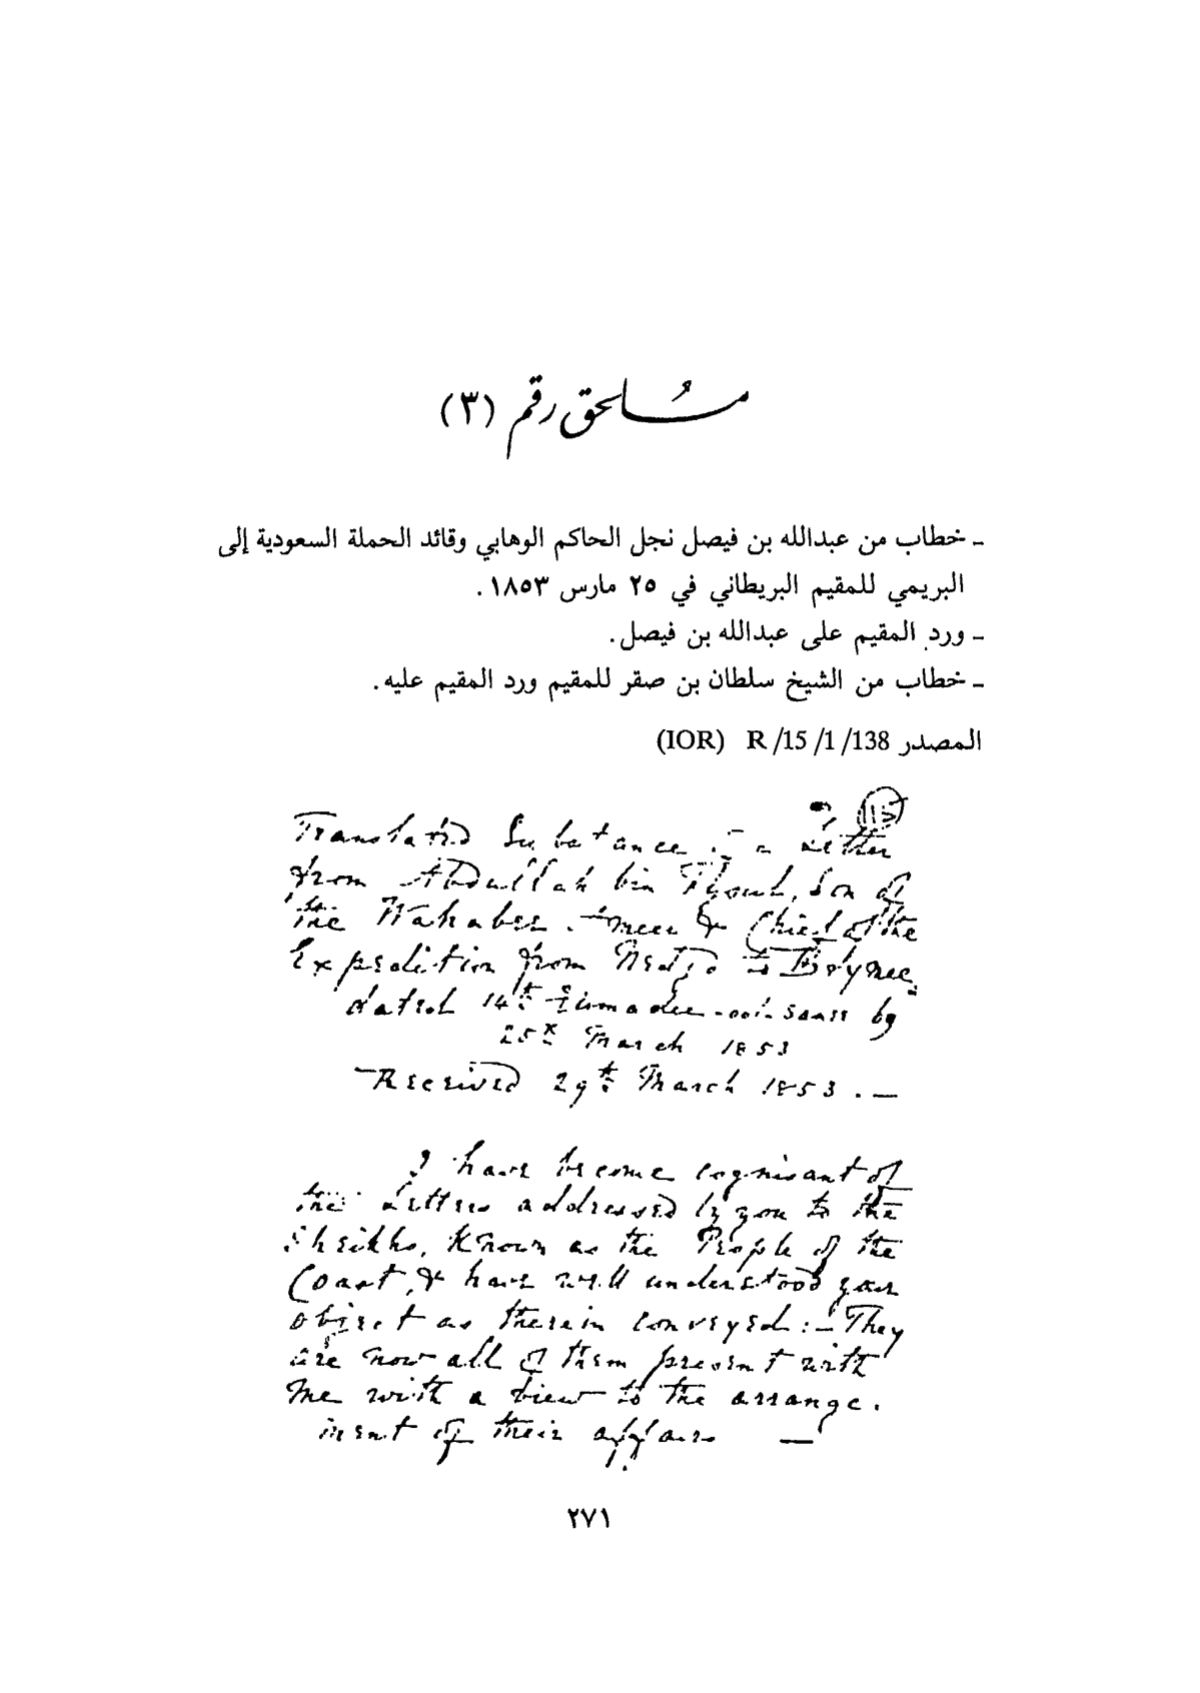 مُلحق رقم (٣)
ـ خطاب من عبدالله بن فيصل نجل الحاكم الوهابي وقائد الحملة السعودية إلى
البريمي للمقيم البريطاني في ٢٥ مارس ١٨٥٣.
ـ ورد المقيم على عبدالله بن فيصل.
ـ خطاب من الشيخ سلطان بن صقر للمقيم ورد المقيم عليه.
المصدر R /15 /1 /138 (IOR)
Translated Substance of a Letter
from Abdullah bin Fysul, Son of
the Wahabee Ameer & Chief of the
Expedition from Nedjd to Brymee,
dated 14th Jumadee-ool-Sanee
25th March 1853
Received 29th March 1853. —
I have become cognisant of
the Letters addressed by you to the
Sheikhs, Known as the People of the
Coast, & have well understood your
object as therein conveyed:— They
are now all of them present with
me with a view to the arrange.
ment of their affairs —
٢٧١